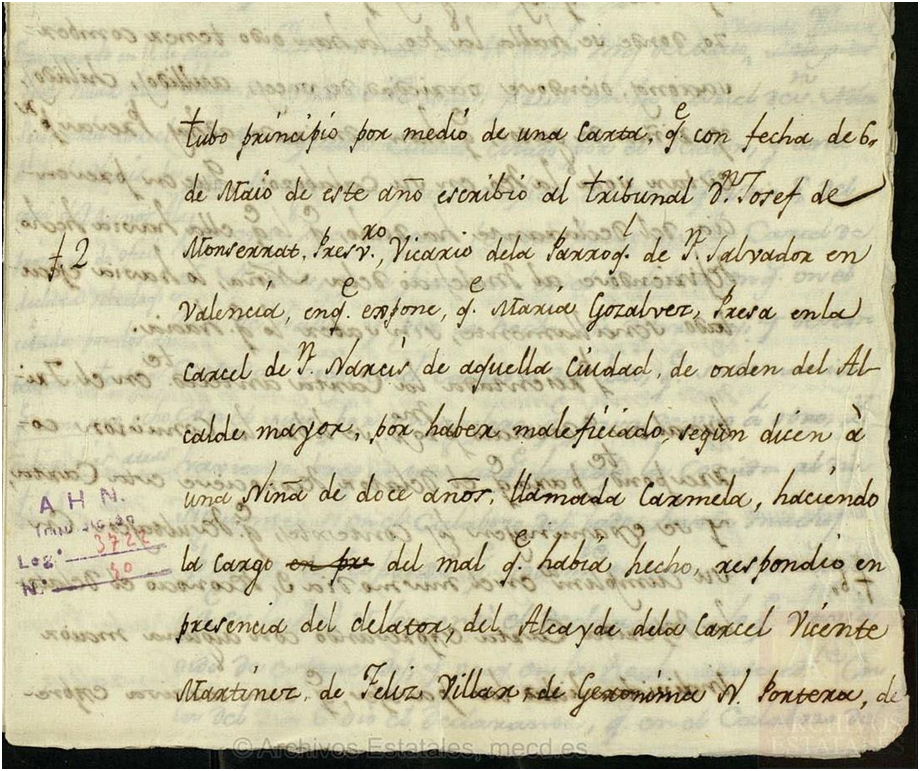 tubo principio por medio de una Carta, q.e con fecha de 6,
de Maio de este año escribio al tribunal D.n Josef de
f 2
Monserrat, Presv.ro, Vicario dela Parroq.l de S.n Salvador en
Valencia, enq.e expone, q.e Maria Gozalvez, Presa enla
Carcel de S.n Narcis de aquella Ciudad, de orden del Al-
calde mayor, por haber maleficiado, segun dicen à
una Niña de doce años, llamada Carmela, haciendo
A H N.
Inquisición
Leg.o 3722
N.o 90
la cargo en pre del mal q.e habia hecho, respondio en
presencia del delator, del Alcayde dela Carcel Vicente
Martinez, de Feliz Villar, de Geronima N. Portera, de
© Archivos Estatales, mecd.es
ARCHIVOS
ESTATALES